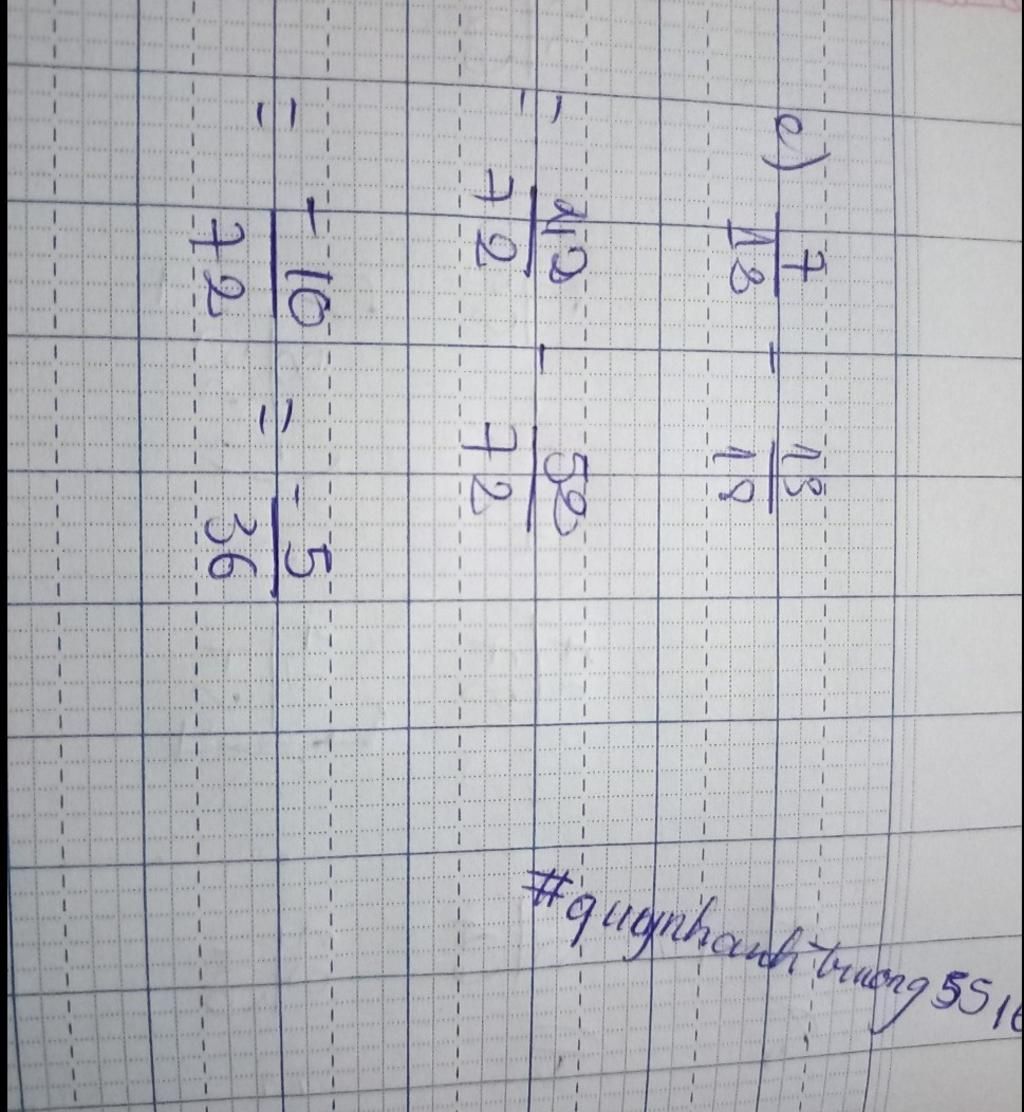 e) 7/12 - 13/18
= 42/72 - 52/72
= -10/72 = -5/36
#quynhanhtruong5516